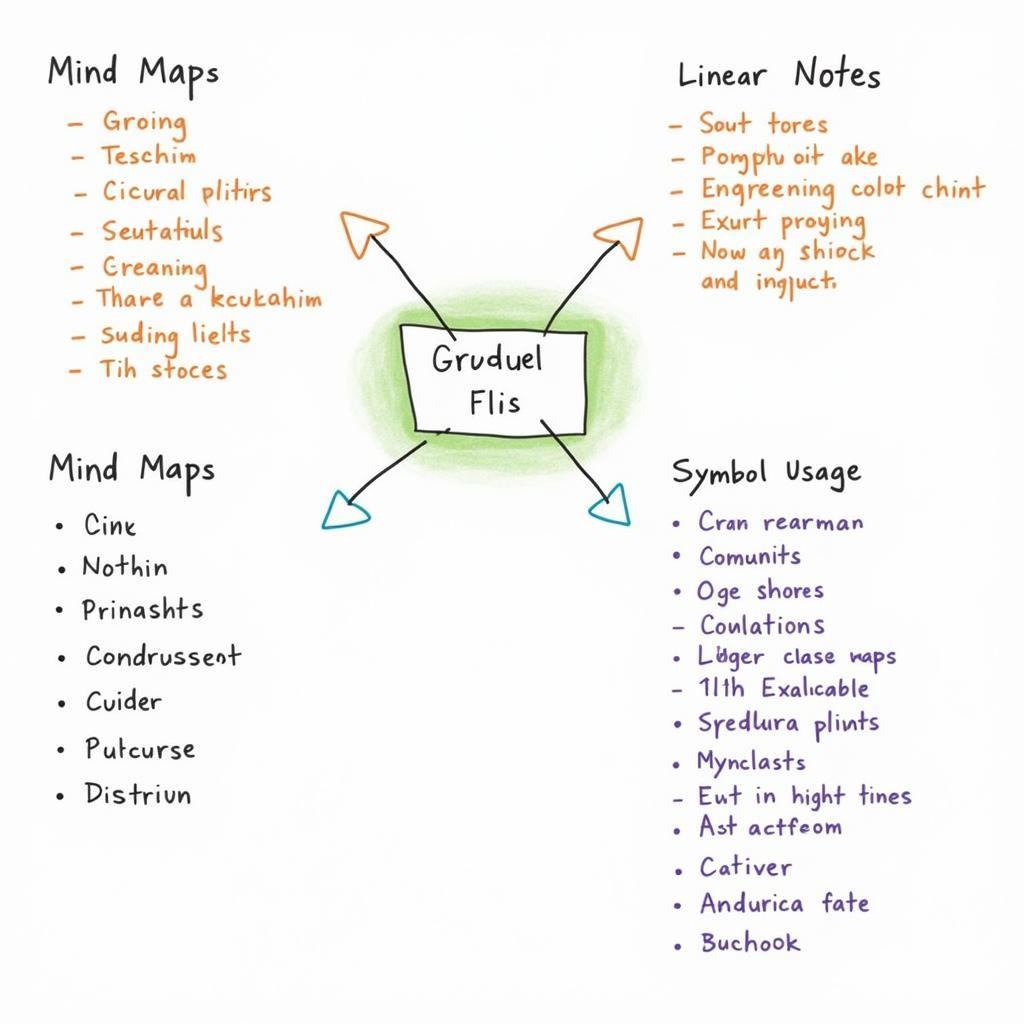 Mind Maps
- Groing
- Teschim
- Cicural plitirs
- Seutatiuls
- Greaning
- Thare a kcukahim
- Suding lielts
- Tih stoces
Linear Notes
- Sout tores
- Pomphu oit ake
- Engreening colot chint
- Exurt proying
- Now an shiock
and ingjuct.
Gruduel
Flis
Mind Maps
• Cink
• Nothin
• Prinashts
• Condrussent
• Cuider
• Putcurse
• Distriun
Symbol Usage
• Cran rearman
• Comunits
• Oge shores
- Coulations
• clase waps
- 11th Exalicable
• Spedlura plints
• Mynclasts
- Eut in hight tines
• Ast actfeom
• Cativer
• Andurica fate
• Buchook